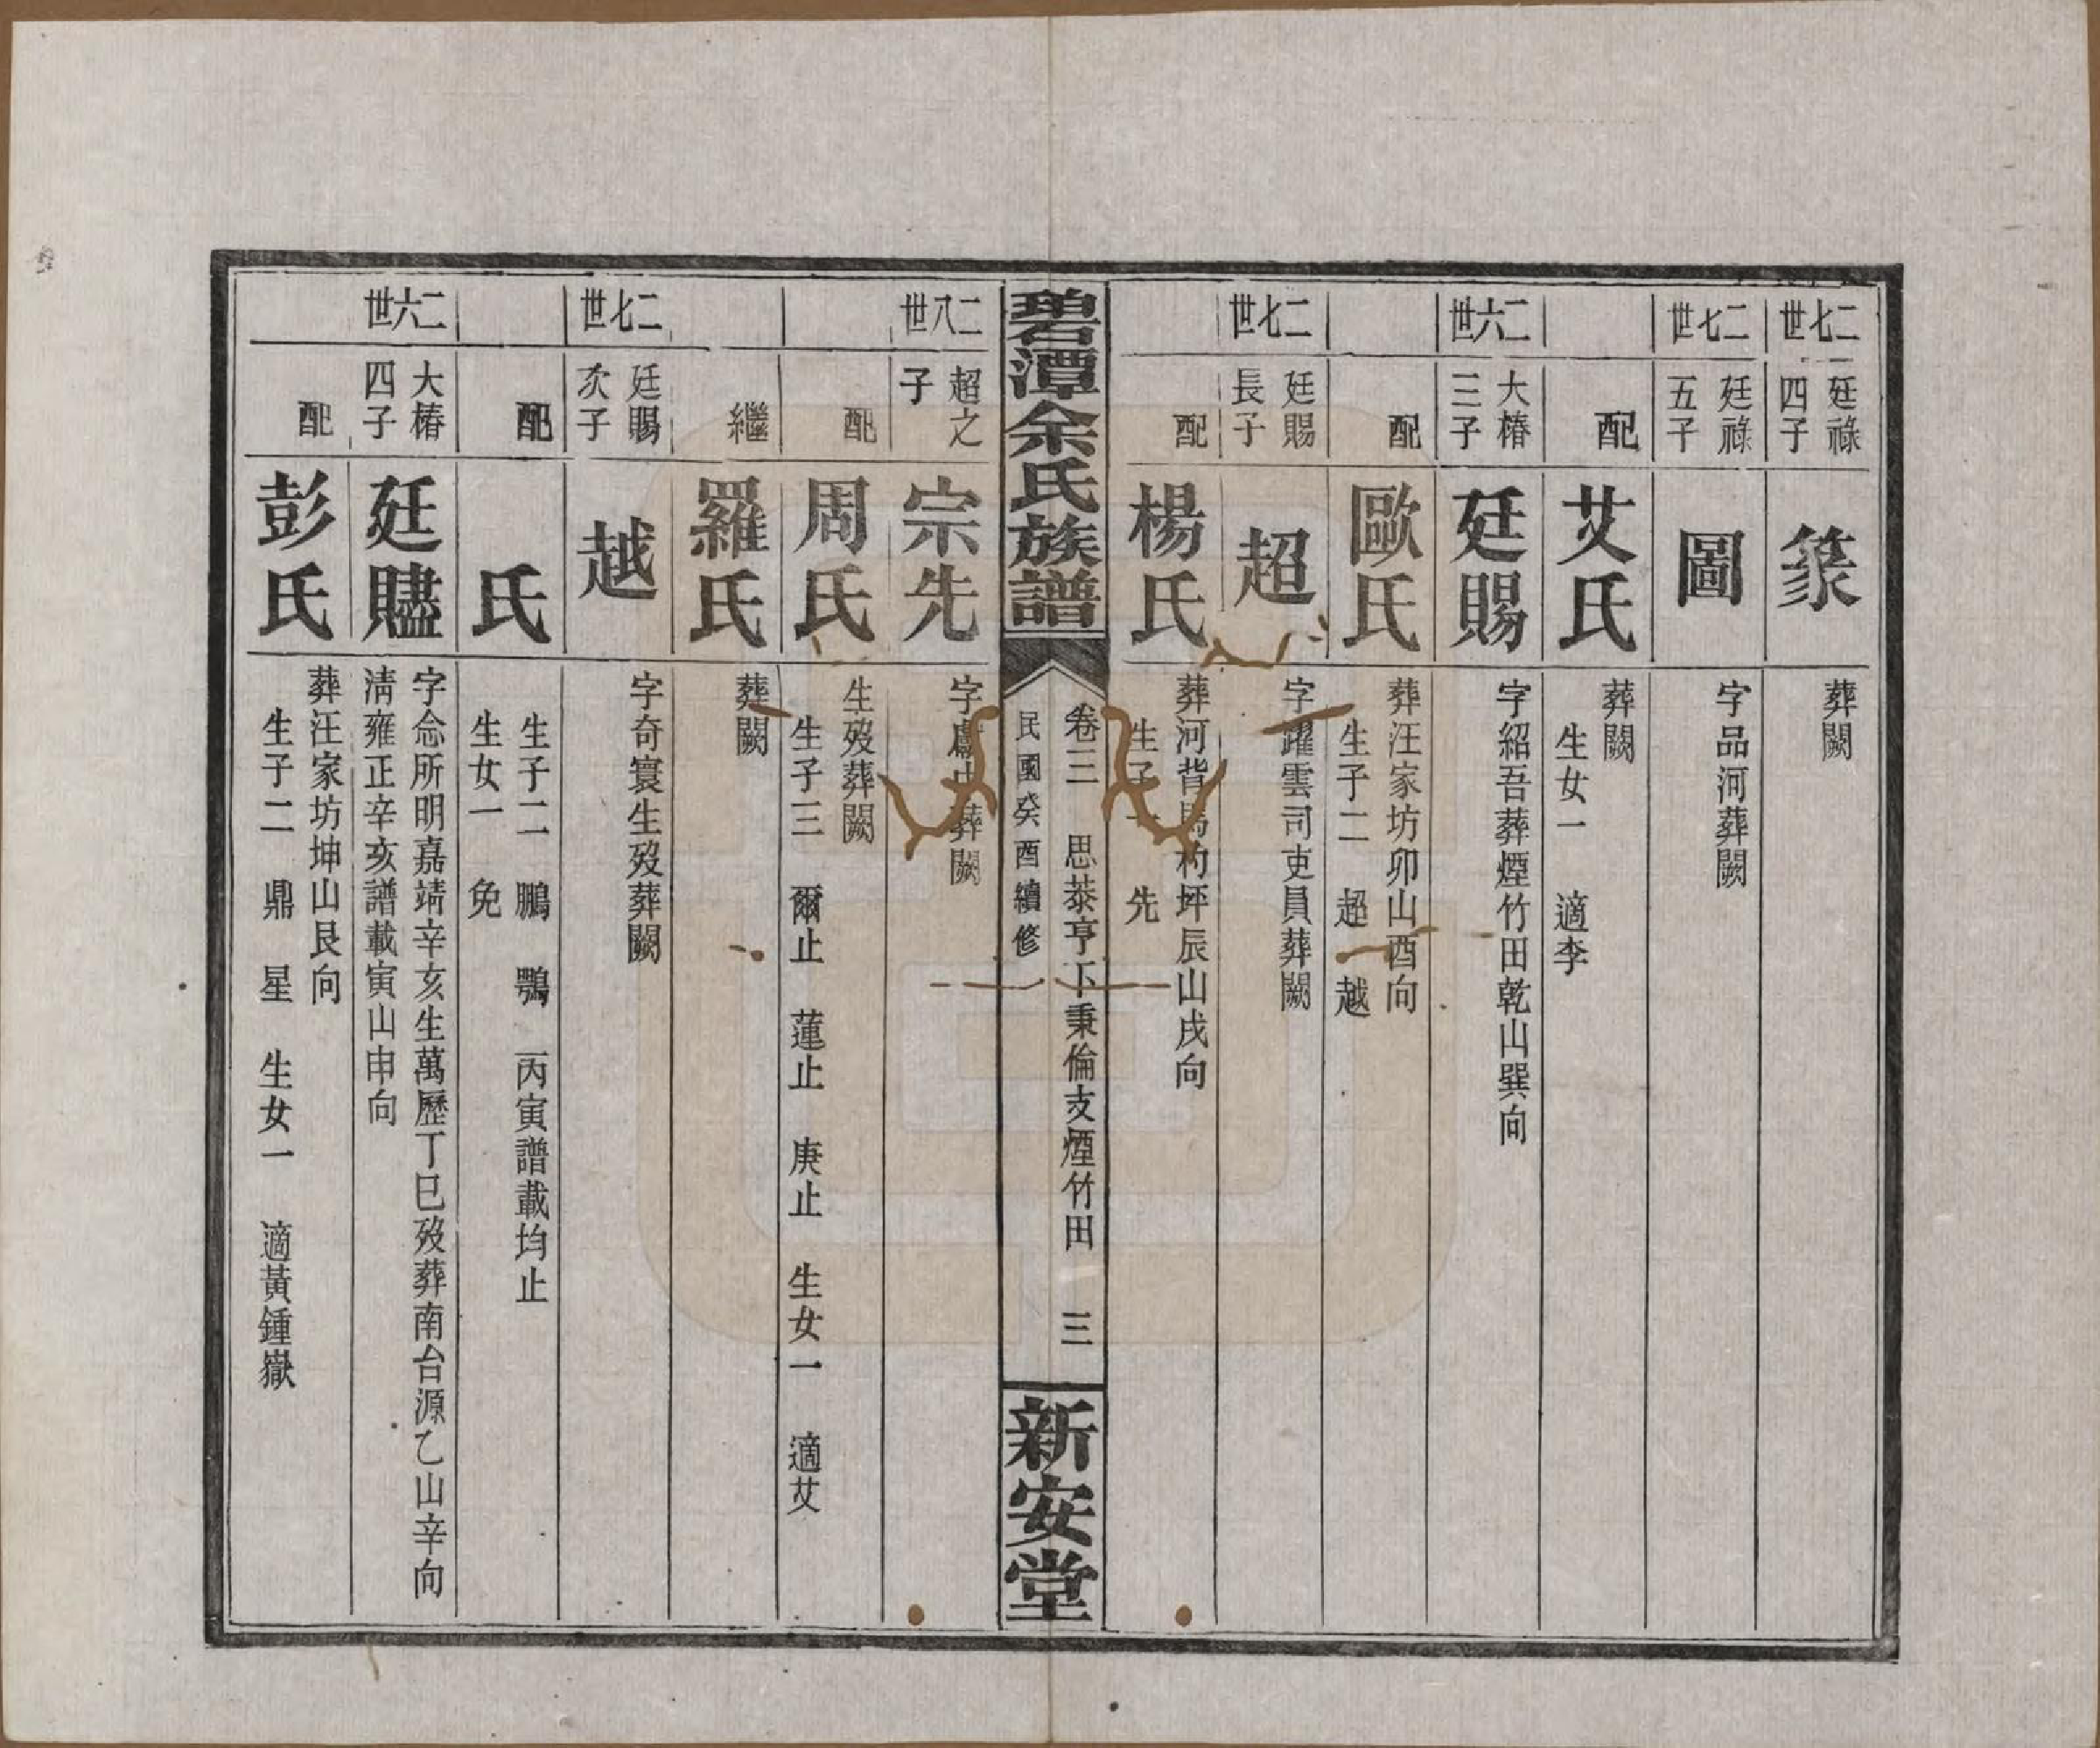 二七世 廷祿四子 篆 葬闕
二七世 廷祿五子 圖 字品河葬闕
配 艾氏 葬闕
生女一 適李
二六世 大椿三子 廷賜 字紹吾葬煙竹田乾山巽向
配 歐氏 葬汪家坊卯山酉向
生子二 超 越
二七世 廷賜長子 超 字躍雲司吏員葬闕
配 楊氏 葬河背馬杓坪辰山戌向
生子一 先
碧潭余氏族譜
卷三 思恭亨下秉倫支煙竹田 三
民國癸酉續修
新安堂
二八世 超之子 宗先 字 葬闕
配 周氏 生歿葬闕
生子三 爾止 蓮止 庚止 生女一 適艾
繼 羅氏 葬闕
二七世 廷賜次子 越 字奇寰生歿葬闕
配 氏 生子二 鵬 鶚 丙寅譜載均止
生女一 免
二六世 大椿四子 廷贐 字念所明嘉靖辛亥生萬歷丁巳歿葬南台源乙山辛向
淸雍正辛亥譜載寅山申向
配 彭氏 葬汪家坊坤山艮向
生子二 鼎 星 生女一 適黃鍾嶽